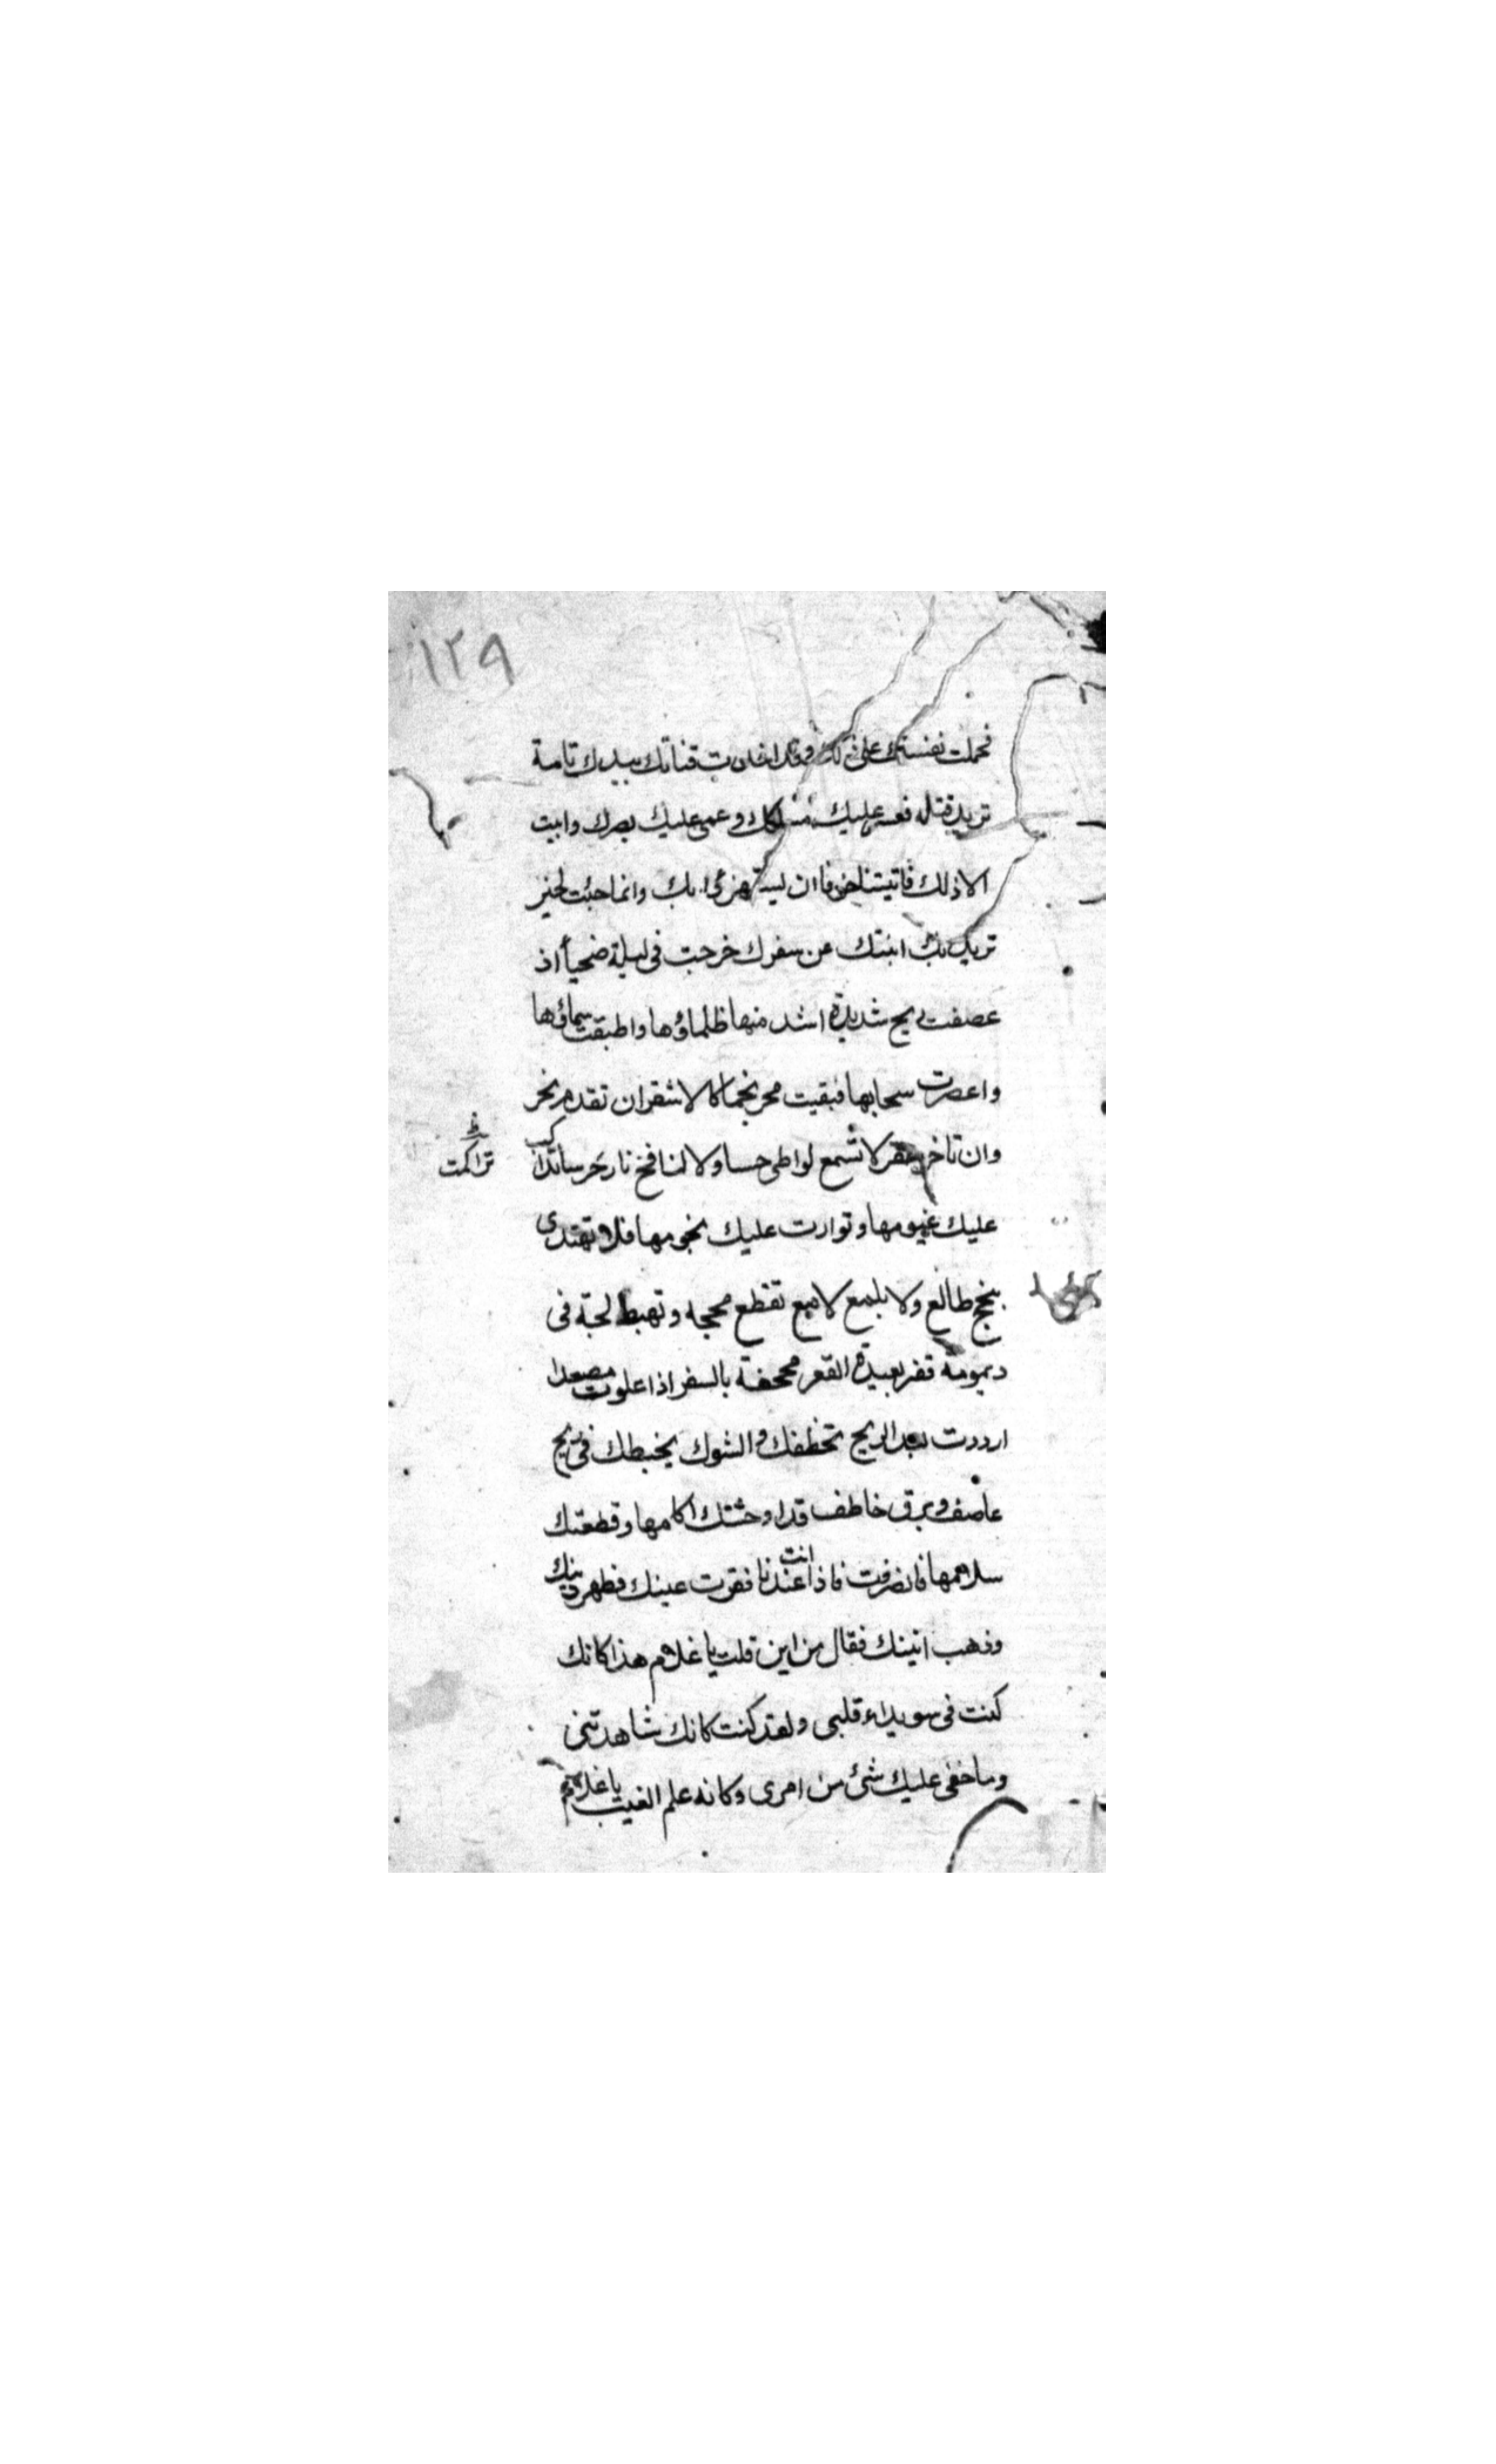 ١٢٩
فحملت نفسك على ذلك وقد اخذت قناتك بيدك تامة
تريد قتله فعسر عليك مسلكك وعمى عليك بصرك وابيت
الا ذلك فاتيتنا خوفا ان يستهزئ بك وانما جئت لخير
تريد بك انبئك عن سفرك خرجت فى ليلة ضحيا اذ
عصفت ريح شديدة اشد منها ظلماؤها واطبقت سماؤها
واعصرت سحابها فبقيت محرنجما كالاشقر ان تقدم نحر
وان تاخر عقر لا تسمع لواطى حسا ولا لنافخ نار جرسا تداكبت
تراكمت
عليك غيومها وتوارت عليك نجومها فلا تهتدى
بنجم طالع ولا بلمع لامع تقطع محجه وتهبط لجة فى
ديمومة قفر بعيدة القعر مجحفة بالسفر اذا علوت مصعدا
ارددت بعدا الريح تخطفك والشوك يخبطك فى ريح
عاصف وبرق خاطف قد اوحشتك اكامها وقطعتك
سلامها فانصرفت فاذا انت عندنا فقرت عينك فظهر دينك
وذهب انينك فقال من اين قلت يا غلام هذا كانك
كنت فى سويداء قلبى ولقد كنت كانك شاهدتنى
وما خفى عليك شئ من امرى وكانه علم الغيب يا غلام